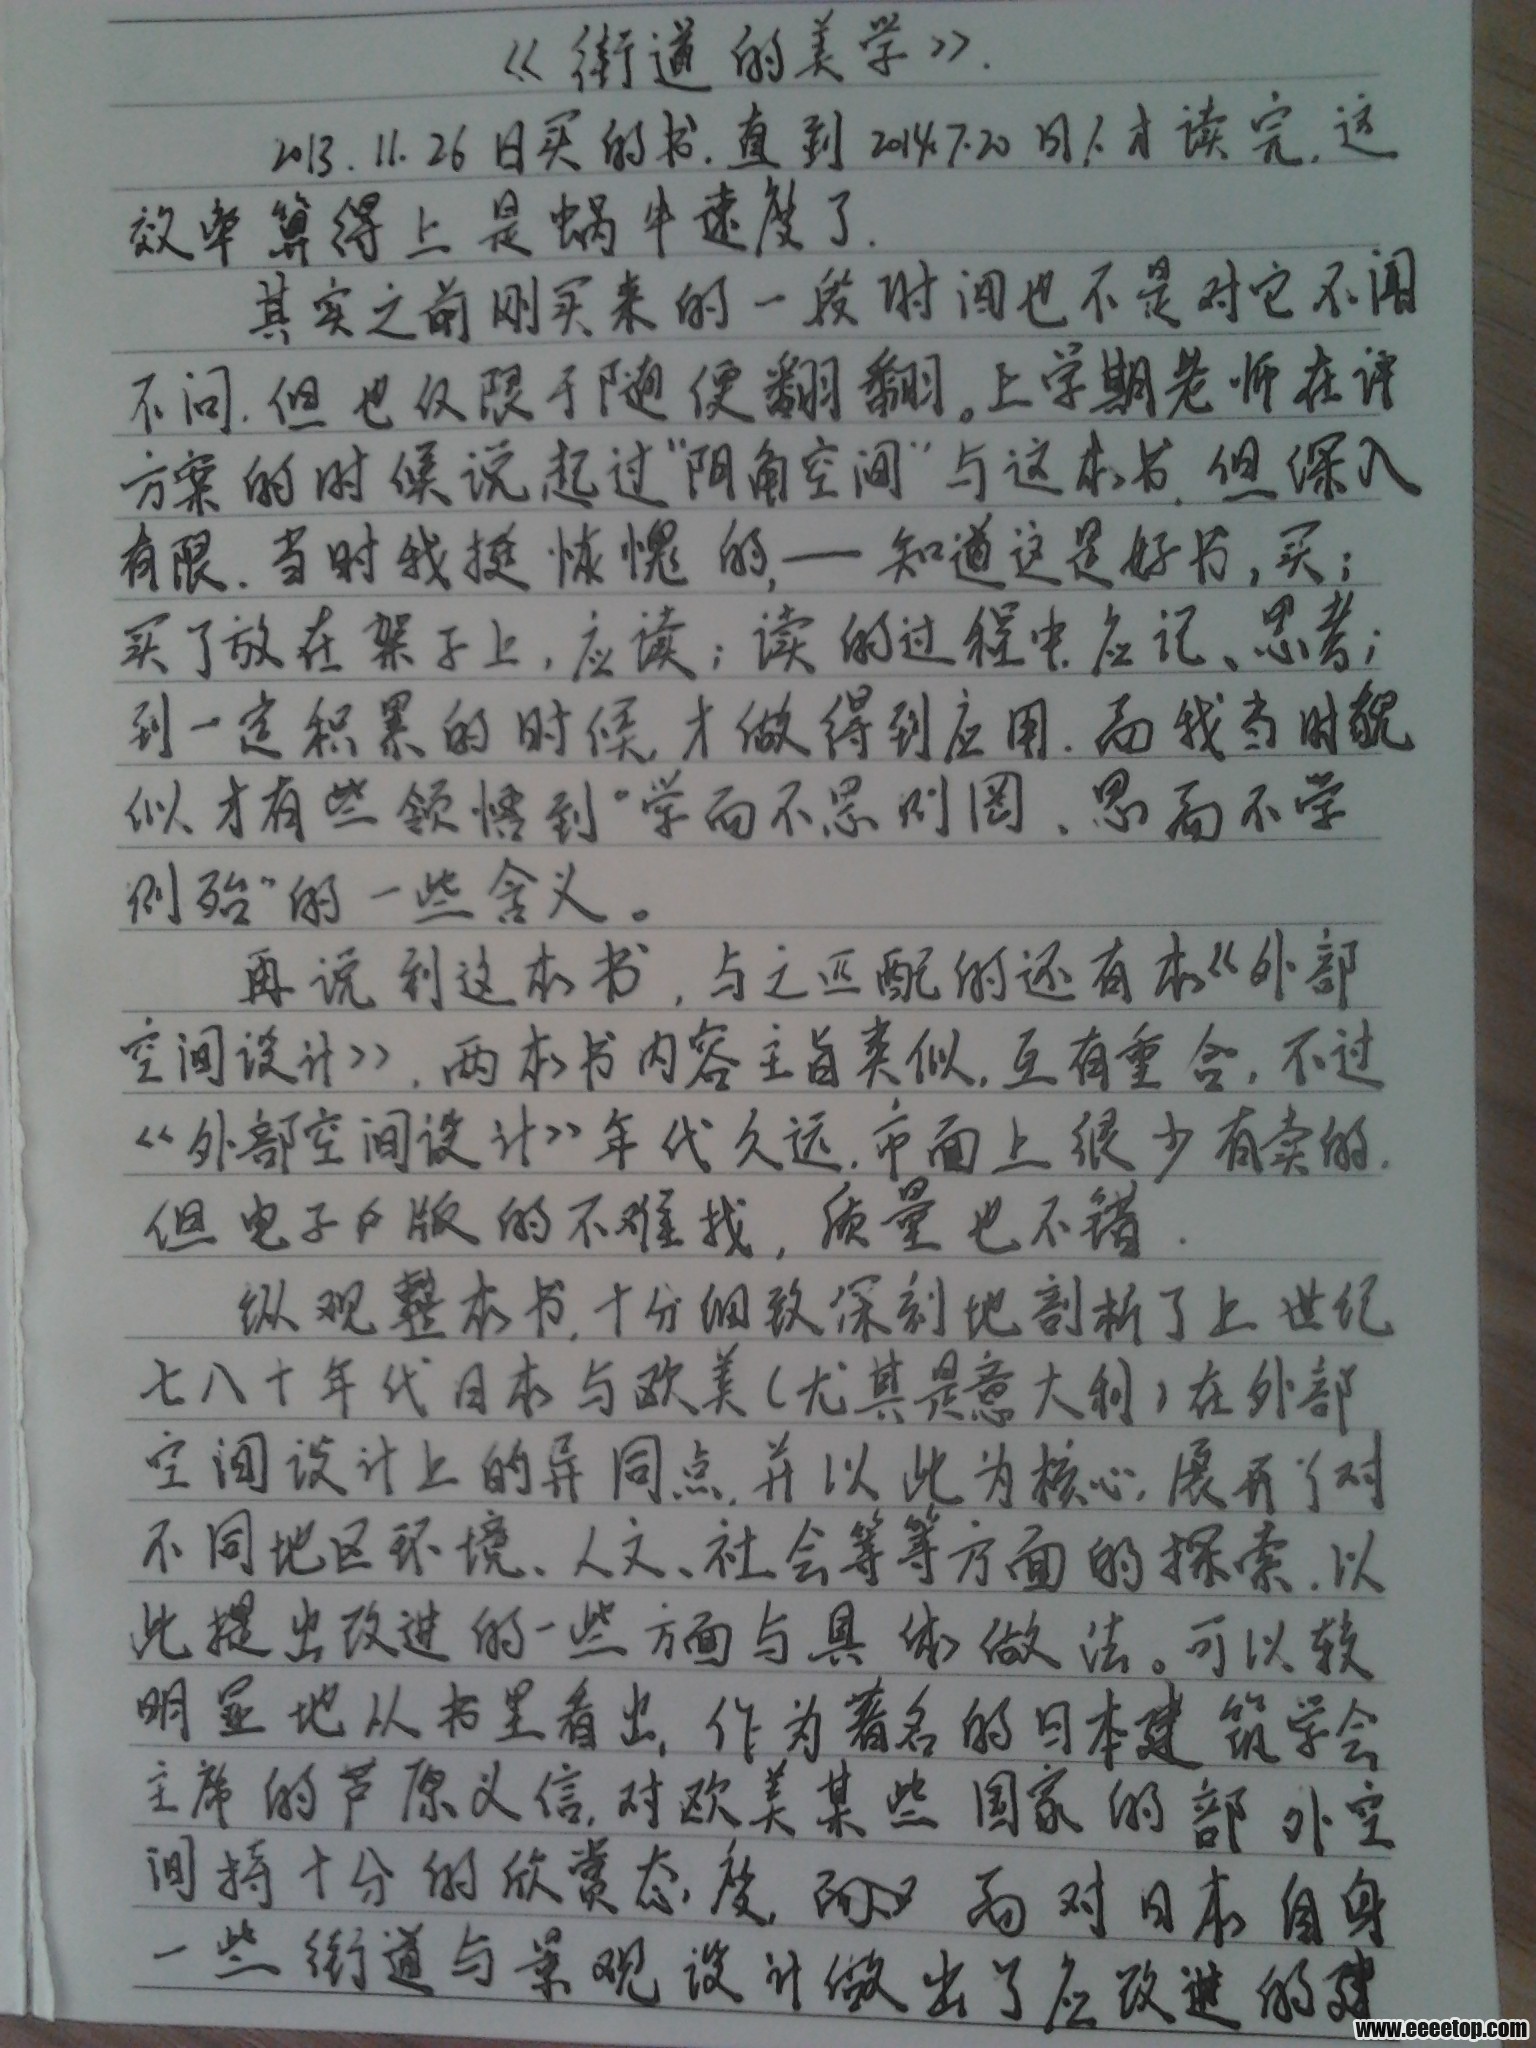 《街道的美学》.
2013.11.26日买的书.直到2014.7.20日才读完.这
效率算得上是蜗牛速度了.
其实之前刚买来的一段时间也不是对它不闻
不问.但也仅限于随便翻翻。上学期老师在评
方案的时候说起过"阴角空间"与这本书.但深入
有限.当时我挺惭愧的,——知道这是好书,买;
买了放在架子上,应读;读的过程中应记、思考;
到一定积累的时候,才做得到应用.而我当时貌
似才有些领悟到"学而不思则罔、思而不学
则殆"的一些含义。
再说到这本书,与之匹配的还有本《外部
空间设计》,两本书内容主旨类似,互有重合,不过
《外部空间设计》年代久远.市面上很少有卖的.
但电子版的不难找,质量也不错.
纵观整本书,十分细致深刻地剖析了上世纪
七八十年代日本与欧美(尤其是意大利)在外部
空间设计上的异同点,并以此为核心,展开了对
不同地区环境、人文、社会等等方面的探索.以
此提出改进的一些方面与具体做法。可以较
明显地从书里看出,作为著名的日本建筑学会
主席的芦原义信,对欧美某些国家的部外空
间持十分的欣赏态度,而对日本自身
一些街道与景观设计做出了应改进的建
www.eeeetop.com